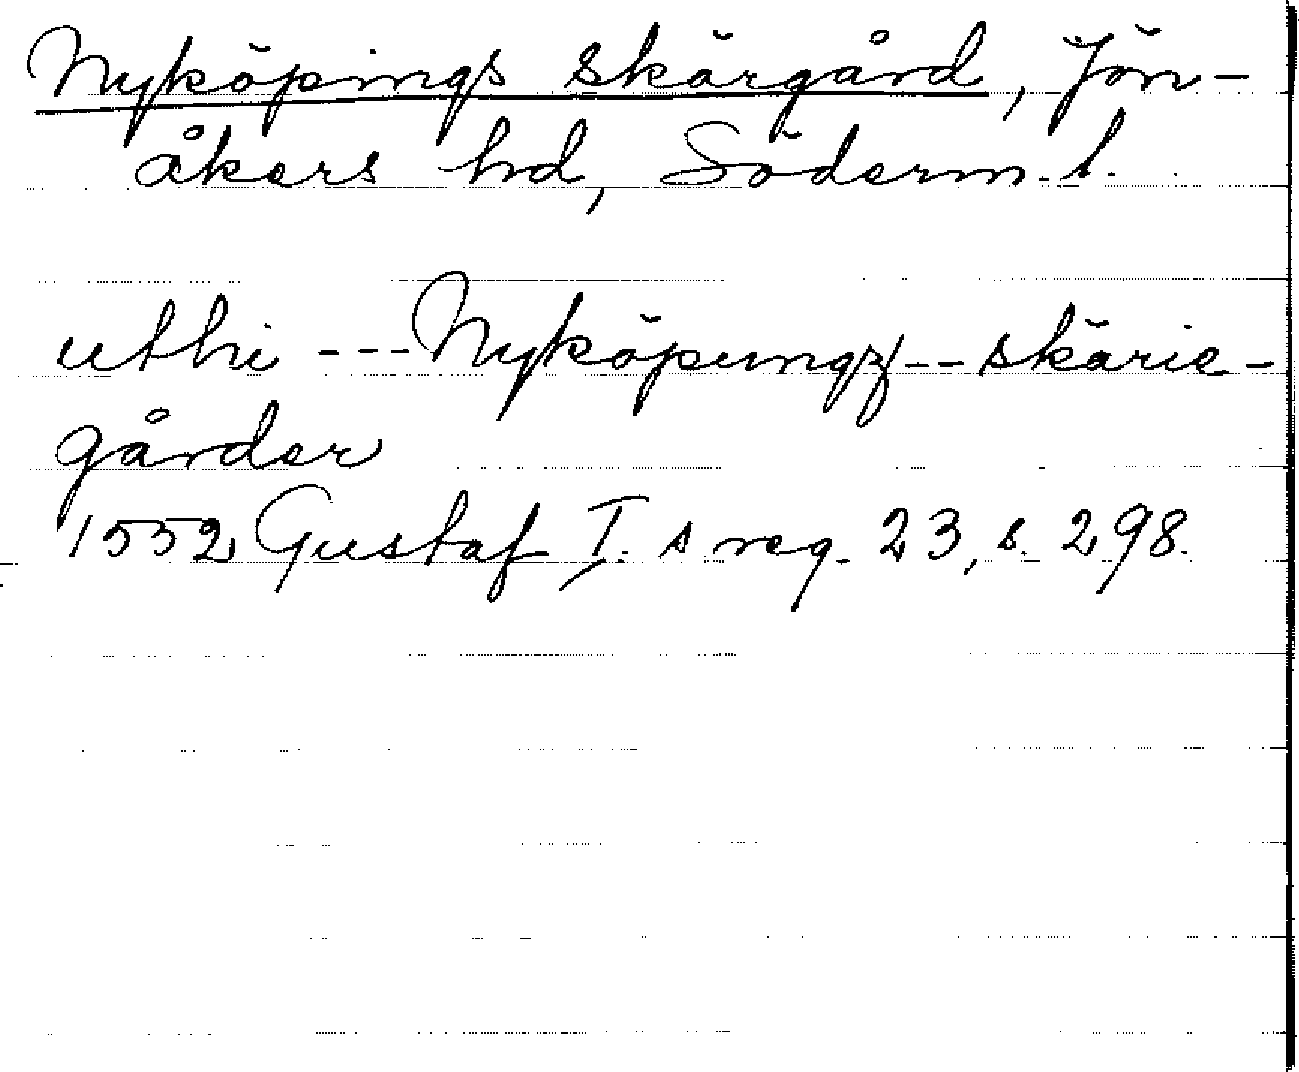 Nyköpings skärgård, Jön-
åkers hd, Söderm. l.
uthi --- Nyköpungz -- skärie-
gårder
1552 Gustaf I. s reg. 23, s. 298.